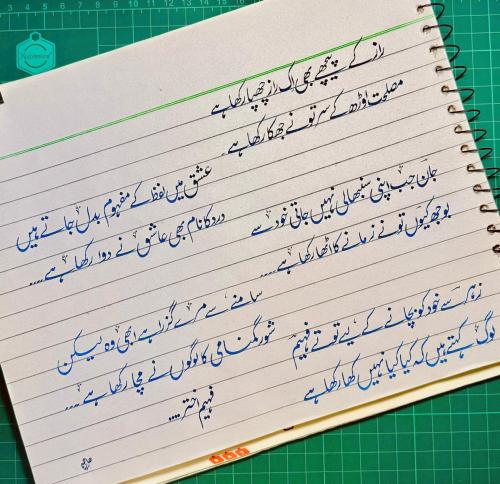 راز کے پیچھے بھی اک راز چھپا رکھا ہے
مصلحت اوڑھ کے سر تو نے جھکا رکھا ہے
عشق میں لفظ کے مفہوم بدل جاتے ہیں
درد کا نام بھی عاشق نے دوا رکھا ہے....
جان جب اپنی سنبھالی نہیں جاتی خود سے
بوجھ کیوں تو نے زمانے کا اٹھا رکھا ہے....
سامنے سے مرے گزرا ہے ابھی وہ لیکن
شور گمنامی کا لوگوں نے مچا رکھا ہے....
زہر سے خود کو بچانے کے لیے تو نے فہیم
لوگ کہتے ہیں کہ کیا کیا نہیں کھا رکھا ہے
فہیم اختر....